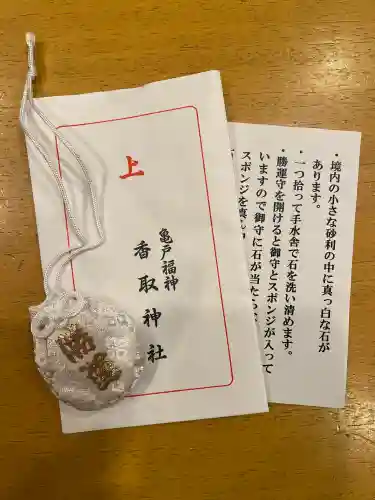 上
亀戸福神
香取神社
勝運
・境内の小さな砂利の中に真っ白な石が
あります。
・一つ拾って手水舎で石を洗い清めます。
・勝運守を開けると御守とスポンジが入って
いますので御守に石が当たらな
スポンジを